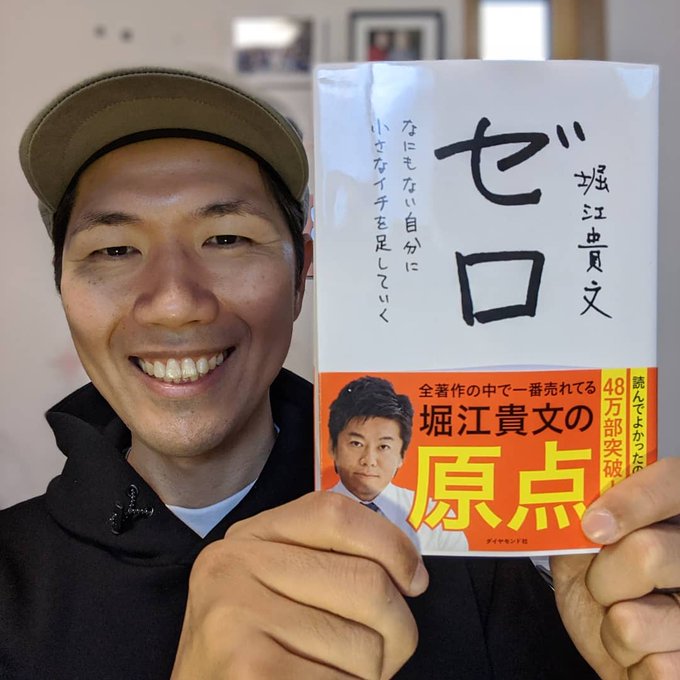 ゼロ
堀江貴文
なにもない自分に
小さなイチを足していく
全著作の中で一番売れてる
堀江貴文の
原点
ダイヤモンド社
読んでよかったの
48万部突破